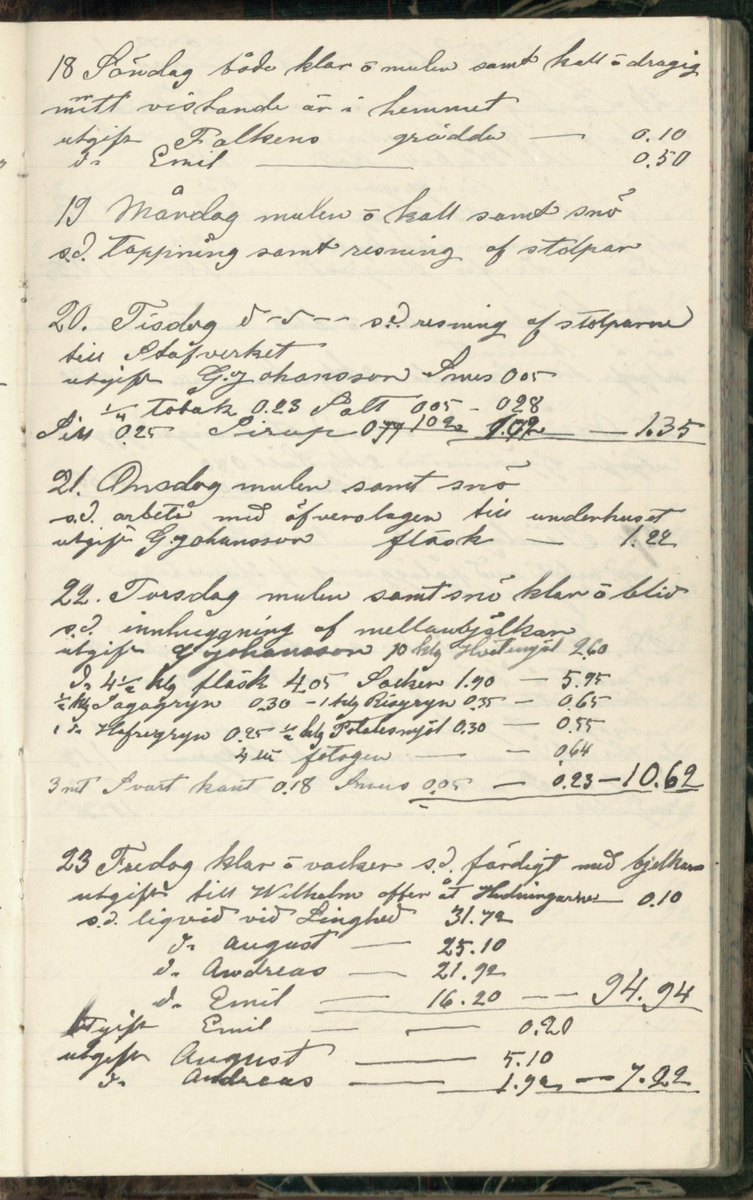 18 Söndag både klar o mulen samt kall o dragig
mitt vistande är i hemmet
utgift Falkens grädde — 0.10
do Emil — 0.50
19 Måndag mulen o kall samt snö
s.d. tappning samt resning af stolpar
20. Tisdag d - d - - s.d. resning af stolparne
till Stafverket
utgift G. Johansson Snus 005
1/4 tobak 0.23 Salt 005 - 028
Sill 0.25 Sirap 077 102 1.02 — 1.35
21. Onsdag mulen samt snö
s.d. arbete med öfverslagen till underhuset
utgift G Johansson fläsk — 1.22
22. Torsdag mulen samt snö klar o blid
s.d. innhuggning af mellanbjälkar
utgift G Johansson 10 klg Hvetemjöl 2.60
do 4 1/2 klg fläsk 4.05 Socker 1.90 — 5.95
1/2 klg Sagogryn 0.30 - 1 klg Risgryn 0.35 — 0.65
1 do Hafregryn 0.25 1/2 klg Potatesmjöl 0.30 — 0.55
4 lit fotogen — — 064
3 mt Svart kant 0.18 Snus 0.05 — 0.23 — 10.62
23 Fredag klar o vacker s.d. färdigt med bjelkar
utgift till Wilhelm offer åt Hedningarne — 0.10
s.d. ligvid vid Linghed 31.72
do August — 25.10
do Andreas — 21.92
do Emil — 16.20 — — 94.94
Utgift Emil — — 0.20
utgift August — 5.10
do Andreas — 1.92 — 7.22